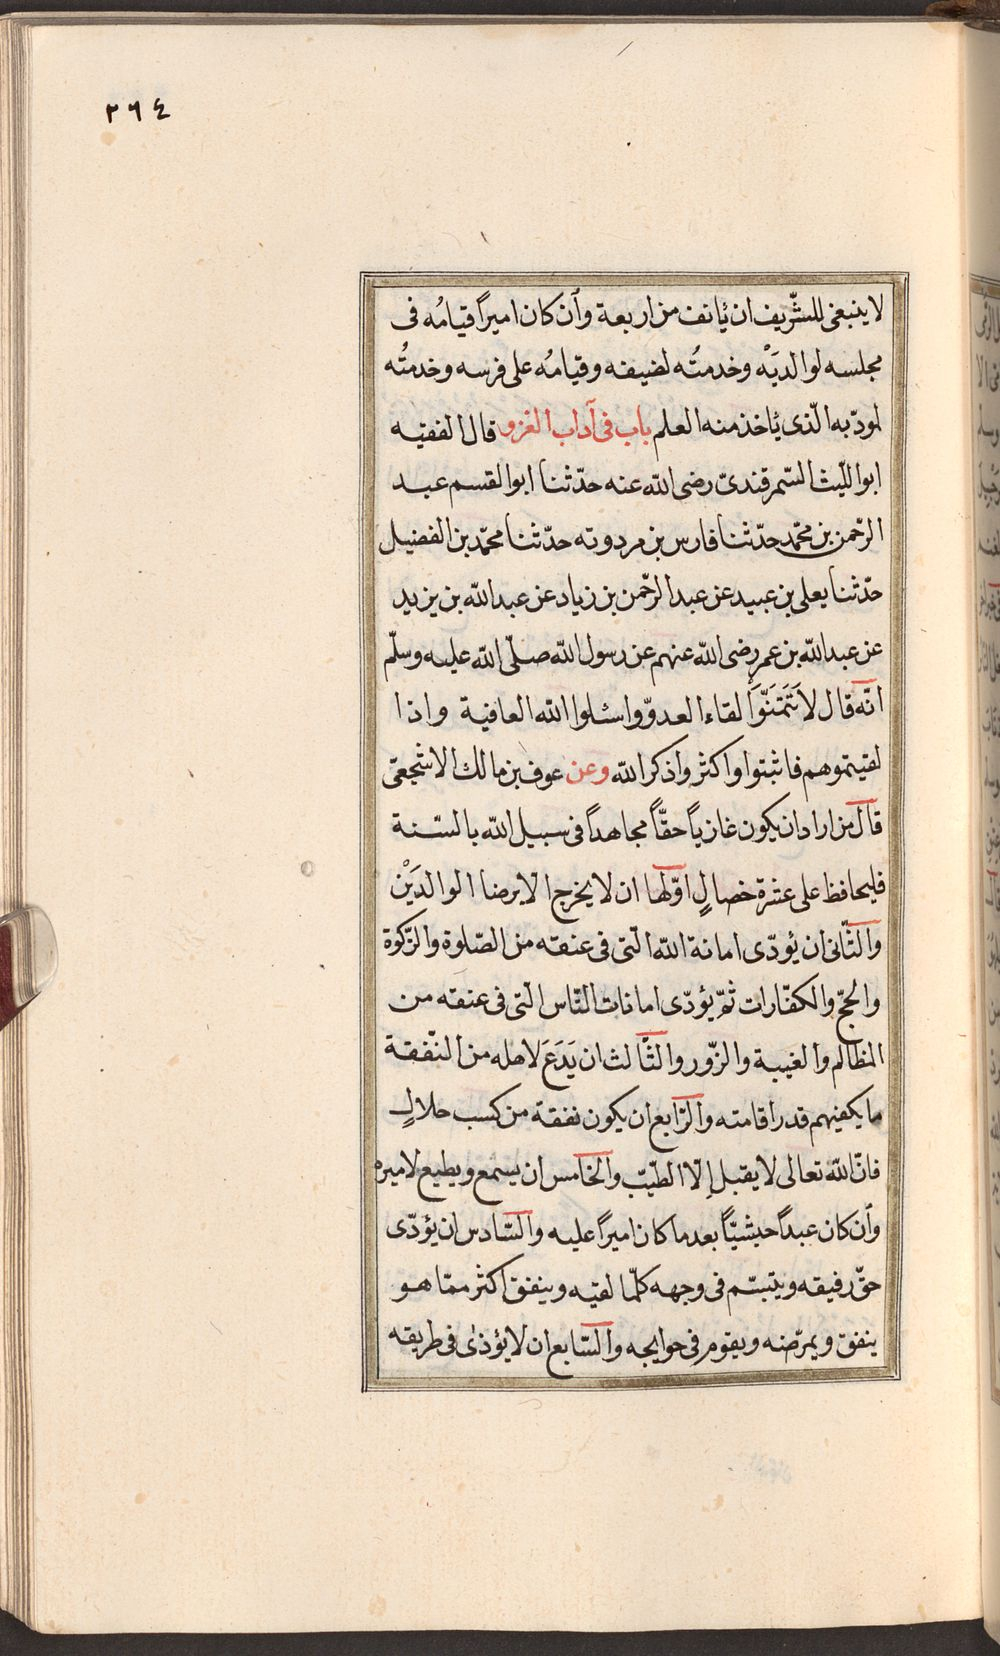 ٢٦٤
لا ينبغى للشّريف ان ئانف من اربعة وأن كان اميراً قيامُه فى
مجلسه لوالديَْه وخدمتُه لضيفه وقيامُه على فرسه وخدمتُه
لمودّبه الّذى ئاخذ منه العلم باب فى آداب الغزو قال الفقيه
ابوا للّيث السّمرقندىّ رضى اللّه عنه حدّثنا ابوا لقسم عبد
الرّحمن بن محمّد حدّثنا فارس بن مردوته حدّثنا محمّد بن الفضيل
حدّثنا يعلى بن عبيد عن عبد الرّحمن بن زياد عن عبد اللّه بن يزيد
عن عبد اللّه بن عمر رضى اللّه عنهم عن رسول اللّه صلّى اللّه عليه وسلّم
انّه قال لا تَتَمَنَّوَا لقاء العدوّ واسئلوا اللّه العافية واذا
لقيتموهم فاثبتوا واكثروا ذكر اللّه وعن عوف بن مالك الاشجعىّ
قال من اراد ان يكون غازياً حقّاً مجاهداً فى سبيل اللّه بالسّنة
فليحافظ على عشرة خصالٍ اوّلها ان لا يخرج الا برضا الوالدَيْن
والثّانى ان يؤدّى امانة اللّه الّتى فى عنقه من الصّلوة والزّكوة
والحجّ والكفّارات ثمّ يؤدّى امانات النّاس الّتى فى عنقه من
المظالم والغيبة والزّور والثّالث ان يَدَعَ لاهله من النّفقة
ما يكفيهم قدر اقامته والرّابع ان يكون نفقة من كسب حلالٍ
فانّ اللّه تعالى لا يقبل إلّا الطّيّب والخامس ان يسمع ويطيع لاميره
وأن كان عبداً حبشيّاً بعد ما كان اميراً عليه والسّادس ان يؤدّى
حقّ رفيقه ويتبسّم فى وجهه كلّما لقيه وينفق اكثر ممّا هو
ينفق ويمرّضنه ويقوم فى حوايجه والسّابع ان لا يؤذى فى طريقه